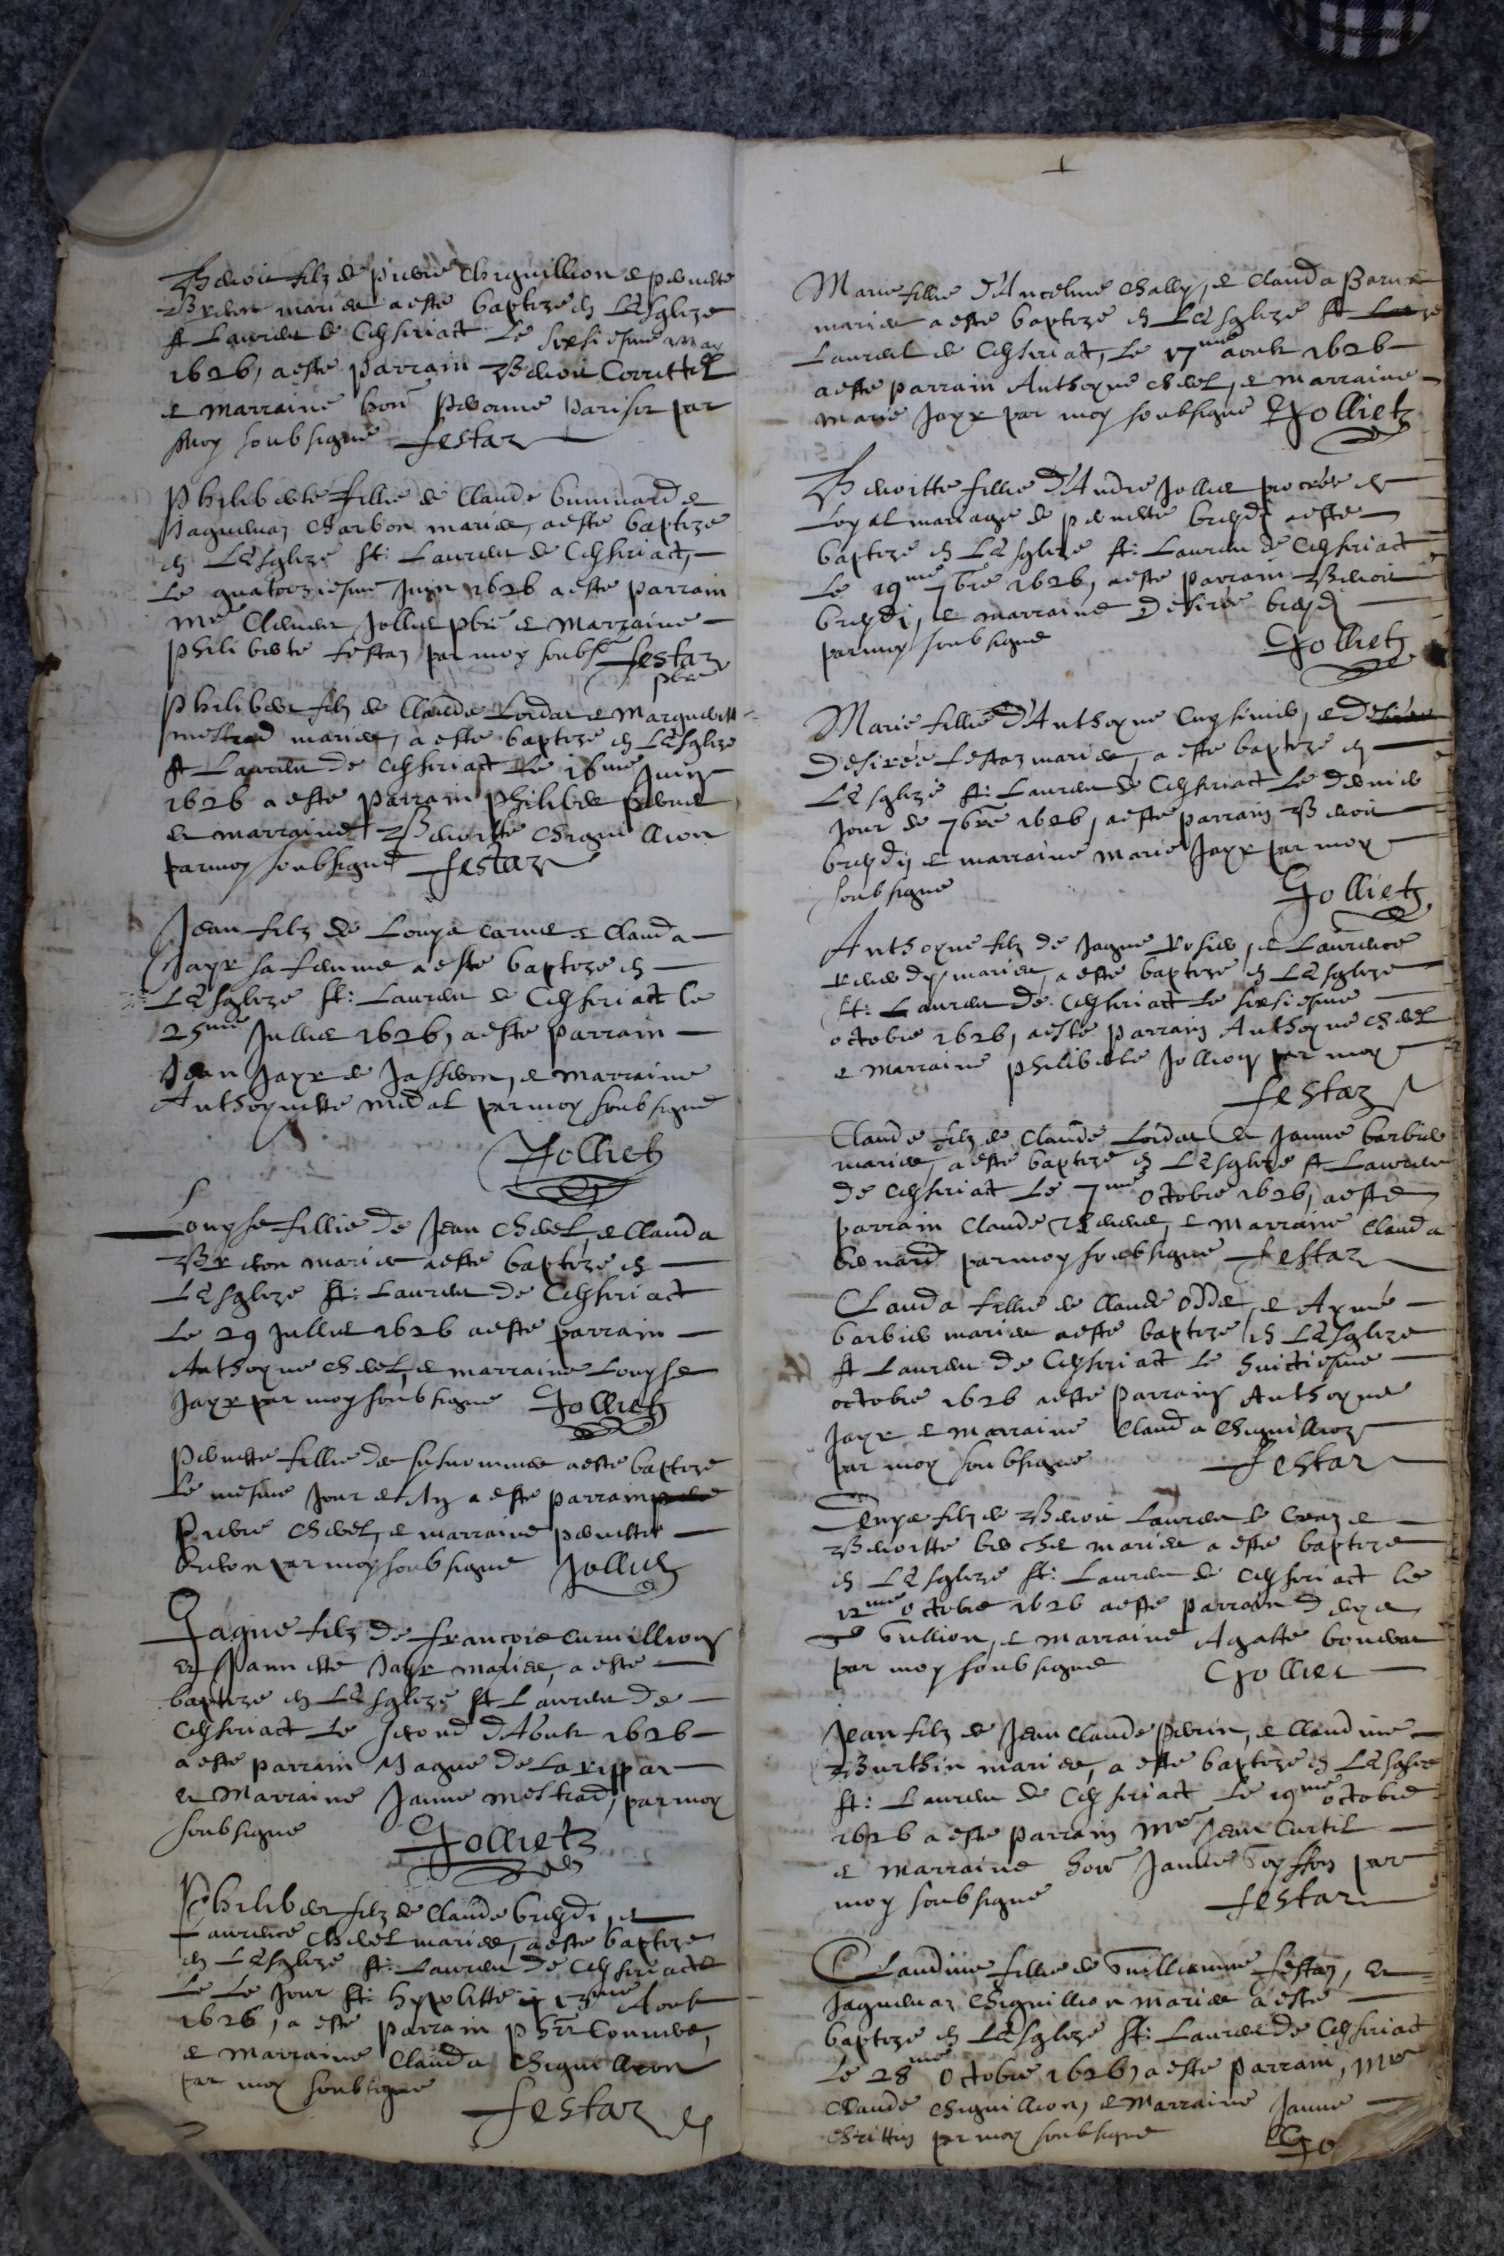 Benoit filz de pierre Chiguillion et pernette
Breton mariez a esté baptizé en L'Esglize
St Laurent de Ceyseriact le sixsiesme may
1626, a esté parrain Benoit
et marraine hon^e pernonne pariset par
moy soubsigné festaz
Philiberte fillie de Claude et
Jaquemaz Charbon mariez, a esté baptizé
en L'Esglize St: Laurent de Ceyseriact,
Le quatorziesme Juin 1626 a esté parrain
m^re Clement Jolliet pbre et marraine
philiberte festaz par moy soubs^e festaz
pbre
Philibert filz de Claude Lordat et Marguerite
mestrad mariez, a esté baptizé en L'Esglize
St Laurent de Ceyseriact le 16^me Juin
1626 a esté parrain philibert
et marraine Benoitte Chiguillion
par moy soubsigné festaz
Jean filz de Louys carret et Clauda
Jayr sa femme a esté baptizé en
L'Esglize St: Laurent de Ceyseriact le
25^me Jullet 1626, a esté parrain
Jean Jayr de Jasseron, et marraine
Anthoynette midal par moy soubsigné
Jolliet
Louyse fillie de Jean Chevel et Clauda
Breton mariez a esté baptizé en
L'Esglize St: Laurent de Ceyseriact
Le 29 Jullet 1626 a esté parrain
Anthoyne Chevel, et marraine Louyse
Jayr par moy soubsigné Jolliet
Pernette fillie de susnommez a esté baptizé
Le mesme Jour et an a esté parrain
Pierre Chevel, et marraine pernette
breton par moy soubsigné Jolliet
Jaque filz de françois
et Jannette Jayr mariez, a esté
baptizé en L'Esglize St Laurent de
Ceyseriact Le second d'Aoust 1626
a esté parrain Jaque de La rippar
et Marraine Janne mestrad, par moy
soubsigné Jolliet
Philibert filz de Claude breydi, et
Laurence Chevel mariez, a esté baptizé
en L'Esglize St: Laurent de Ceyseriact
Le Le Jour St: hypolitte 13^me Aoust
1626, a esté parrain
et marraine Clauda Chiguillion
par moy soubsigné
festaz
Marie fillie d'Ancelme Chally, et Clauda
mariez a esté baptizé en L'Esglize St
Laurent de Ceyseriact, Le 17^me aoust 1626
a esté parrain Anthoyne Chevel, et marraine
Marie Jayr par moy soubsigné Jolliet
Benoitte fillie d'Andre Jolliet procréée en
Loyal mariage de pernette breydi a esté
baptizé en L'Esglize St: Laurent de Ceyseriact
Le 19^me 7bre 1626, a esté parrain Benoit
breydi, et marraine desirée breydi
par moy soubsigné
Jolliet
Marie fillie d'Anthoyne Cuysinier, et
Desirée festaz mariez, a esté baptizé en
L'Esglize St: Laurent de Ceyseriact Le dernier
Jour de 7bre 1626, a esté parrain Benoit
breydi, et marraine marie Jayr par moy
soubsigné Jolliet
Anthoyne filz de Jaque Rosier, et Laurence
mariez, a esté baptizé en L'Esglize
St: Laurent de Ceyseriact Le sixsiesme
octobre 1626, a esté parrain Anthoyne Chevel
et marraine philiberte Jollion par moy
festaz
Claude filz de Claude Lordat et Janne barbier
mariez, a esté baptizé en L'Esglize St Laurent
de Ceyseriact Le 7^me Octobre 1626, a esté
parrain Claude et marraine Clauda
bernard par moy soubsigné festaz
Clauda fillie de Claude Odde, et Aymé
barbier mariez a esté baptizé en L'Esglize
St Laurent de Ceyseriact Le huictiesme
octobre 1626 a esté parrain Anthoyne
Jayr et marraine Clauda Chiguillion
par moy soubsigné festaz
Benoit Laurent et
Benoitte mariez a esté baptizé
en L'Esglize St: Laurent de Ceyseriact Le
12^me Octobre 1626 a esté parrain
Tullion, et marraine Agatte
par moy soubsigné Jolliet
Jean filz de Jean Claude perrin, et Claudine
Burthin mariez, a esté baptizé en L'Esglize
St: Laurent de Ceyseriact Le 19^me octobre
1626 a esté parrain m^re Jean Curtil
et marraine hon^e Janne par
moy soubsigné
festaz
Claudine fillie de Guilliaume festaz, et
Jaquemaz Chiguillion mariez a esté
baptizé en L'Esglize St: Laurent de Ceyseriact
Le 28^me Octobre 1626, a esté parrain, m^re
Claude Chiguillion, et Marraine Janne
par moy soubsigné